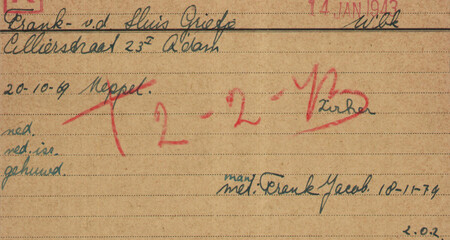 14 JAN 1943
Frank - v.d Sluis Grietje Wbk
Cilliérstraat 23 I A'dam
20-10-69 Meppel.
T 2-2-43
ned.
ned. isr.
gehuwd.
man
met. Frank Jacob 18-11-79
2.0.2.